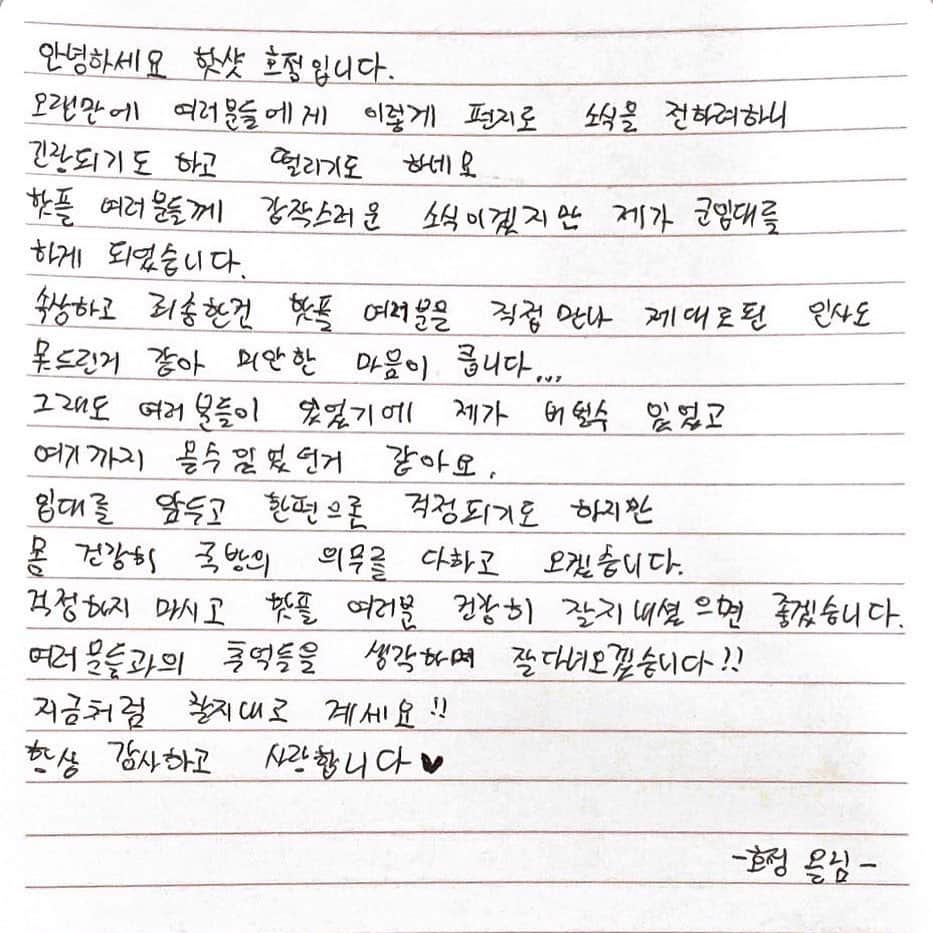 안녕하세요 핫샷 호정입니다.
오랜만에 여러분들에게 이렇게 편지로 소식을 전하려하니
긴장되기도 하고 떨리기도 하네요
핫플 여러분들께 갑작스러운 소식이겠지만 제가 군입대를
하게 되었습니다.
속상하고 죄송한건 핫플 여러분을 직접 만나 제대로된 인사도
못드린거 같아 미안한 마음이 큽니다...
그래도 여러분들이 있었기에 제가 버틸수 있었고
여기까지 올수있었던거 같아요.
입대를 앞두고 한편으론 걱정되기도 하지만
몸 건강히 국방의 의무를 다하고 오겠습니다.
걱정하지 마시고 핫플 여러분 건강히 잘지내셨으면 좋겠습니다.
여러분들과의 추억들을 생각하며 잘다녀오겠습니다!!
지금처럼 찰지대로 계세요!!
항상 감사하고 사랑합니다♥
-호정 올림-